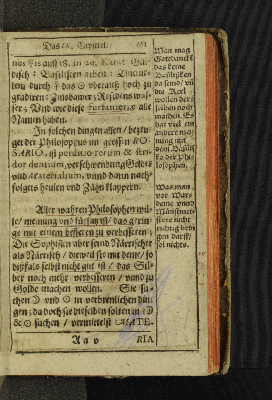 Das IX. Capittel. 161
nos fit auß 18. in 20. Karat Gül-
disch: Basilisten arbeit: Tinctur-
lein durch ☽ das ☉ überauß hoch zu
gradiren: Zinober
ser: Und wie diese Turbatores alle
Namen haben.
In solchen dingen allen / bezeu-
get der Philosophus im grossen RO-
SARIO, ist perditio rerum & stri-
dor dentium, verschwendung Geldes
und Materialium, unnd dann nach-
folgets heulen und Zähn klappern.
Aller wahren Philosophen wil-
le / meinung und fürsatz ist / das gerin-
ge mit einem bessern zu verbessern:
Die Sophisten aber seind Närrischer
als Närrisch / dieweil sie mit dem / so
dißfals selbst nicht gut ist / das Sil-
ber noch mehr verbessern / unnd zu
Golde machen wollen. Sie su-
chen ☽ und ☉ in verbrenlichen din-
gen: da doch sie dieselben solten in ☽
& ☉ suchen / vermittelst MATE-
A a v RIA
Man mag
Gott danck
das keine
Basilisken
da send / wie
die Kerl
wollen der
selben noch
machen. Es
hat viel ein
andere mei-
nung mit
dem Basilis-
ko der Phi-
losophen.
Was man
vor War-
deine und
Müntzmei-
stere nicht
richtig brin-
gen darff /
sol nichts.